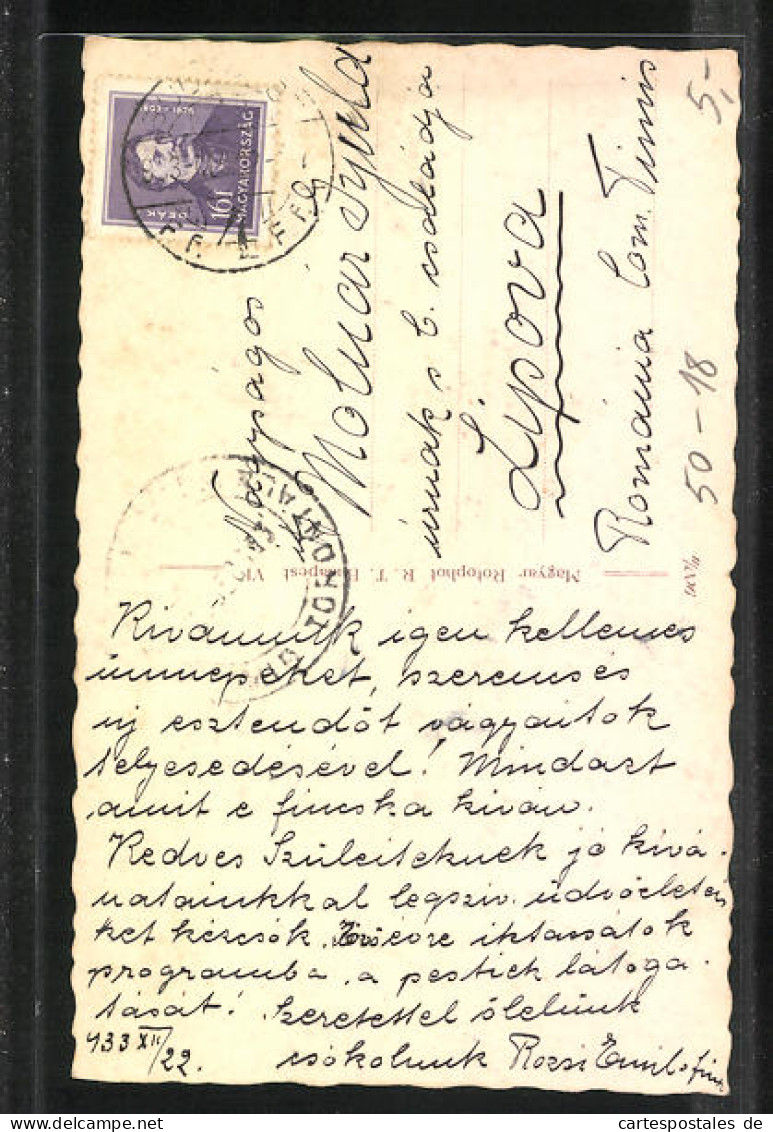 DEÁK
16f
MAGYARORSZÁG
Nagyságos
Molnar Gyula
úrnak s b. családja
Lipova
Románia Com. Timis
5,-
50-18
Magyar Rotophot R. T. Budapest VI
TORONTAL
Kivánunk igen kellemes
ünnepeket, szerencsés
uj esztendőt vágyaitok
teljesedésével! Mindazt
amit e fincska kíván.
Kedves Szüleiteknek jó kívá-
natainkkal legsziv. üdvözletein
ket kézcsók. évre iktassátok
programba a pestiek látoga-
tását! Szeretettel ölelünk
csókolunk Rozsi Emil s
933 XII/22.
cartespostales de